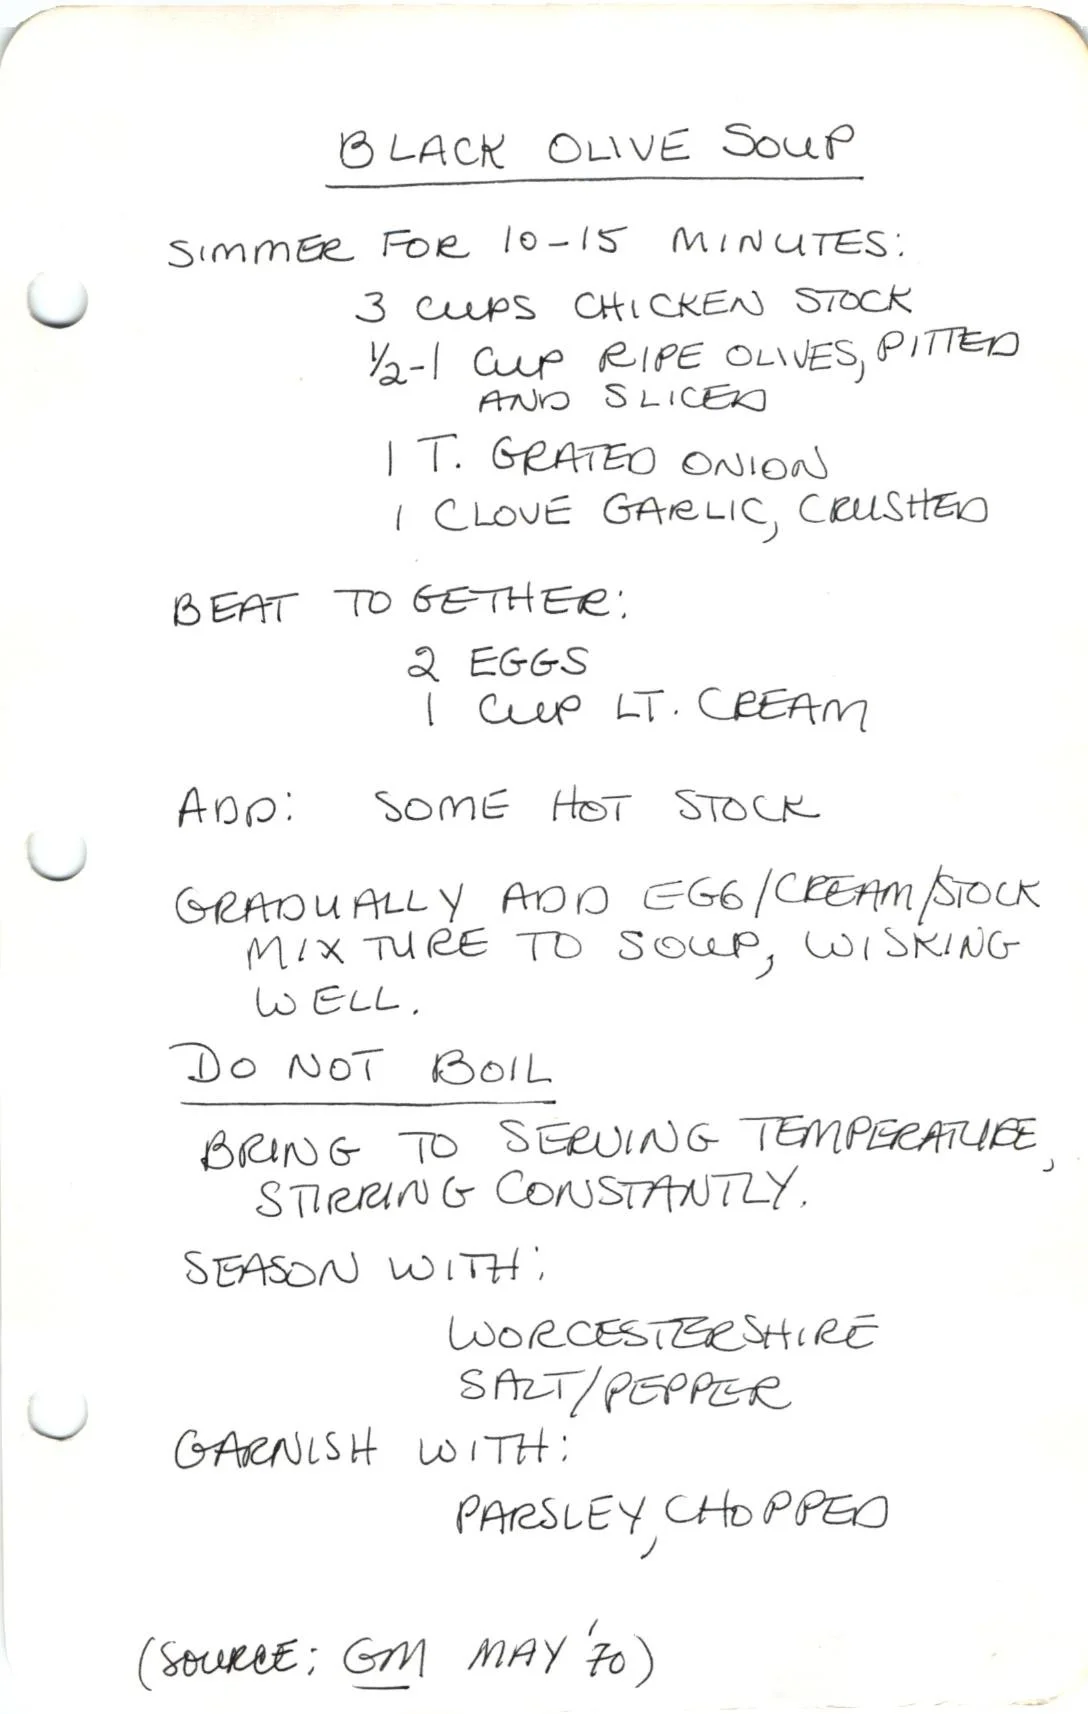 BLACK OLIVE SOUP
SIMMER FOR 10-15 MINUTES:
3 CUPS CHICKEN STOCK
1/2-1 CUP RIPE OLIVES, PITTED
AND SLICED
1 T. GRATED ONION
1 CLOVE GARLIC, CRUSHED
BEAT TOGETHER:
2 EGGS
1 CUP LT. CREAM
ADD: SOME HOT STOCK
GRADUALLY ADD EGG/CREAM/STOCK
MIXTURE TO SOUP, WISKING
WELL.
DO NOT BOIL
BRING TO SERVING TEMPERATURE,
STIRRING CONSTANTLY.
SEASON WITH:
WORCESTERSHIRE
SALT/PEPPER
GARNISH WITH:
PARSLEY, CHOPPED
(SOURCE: GM MAY '70)